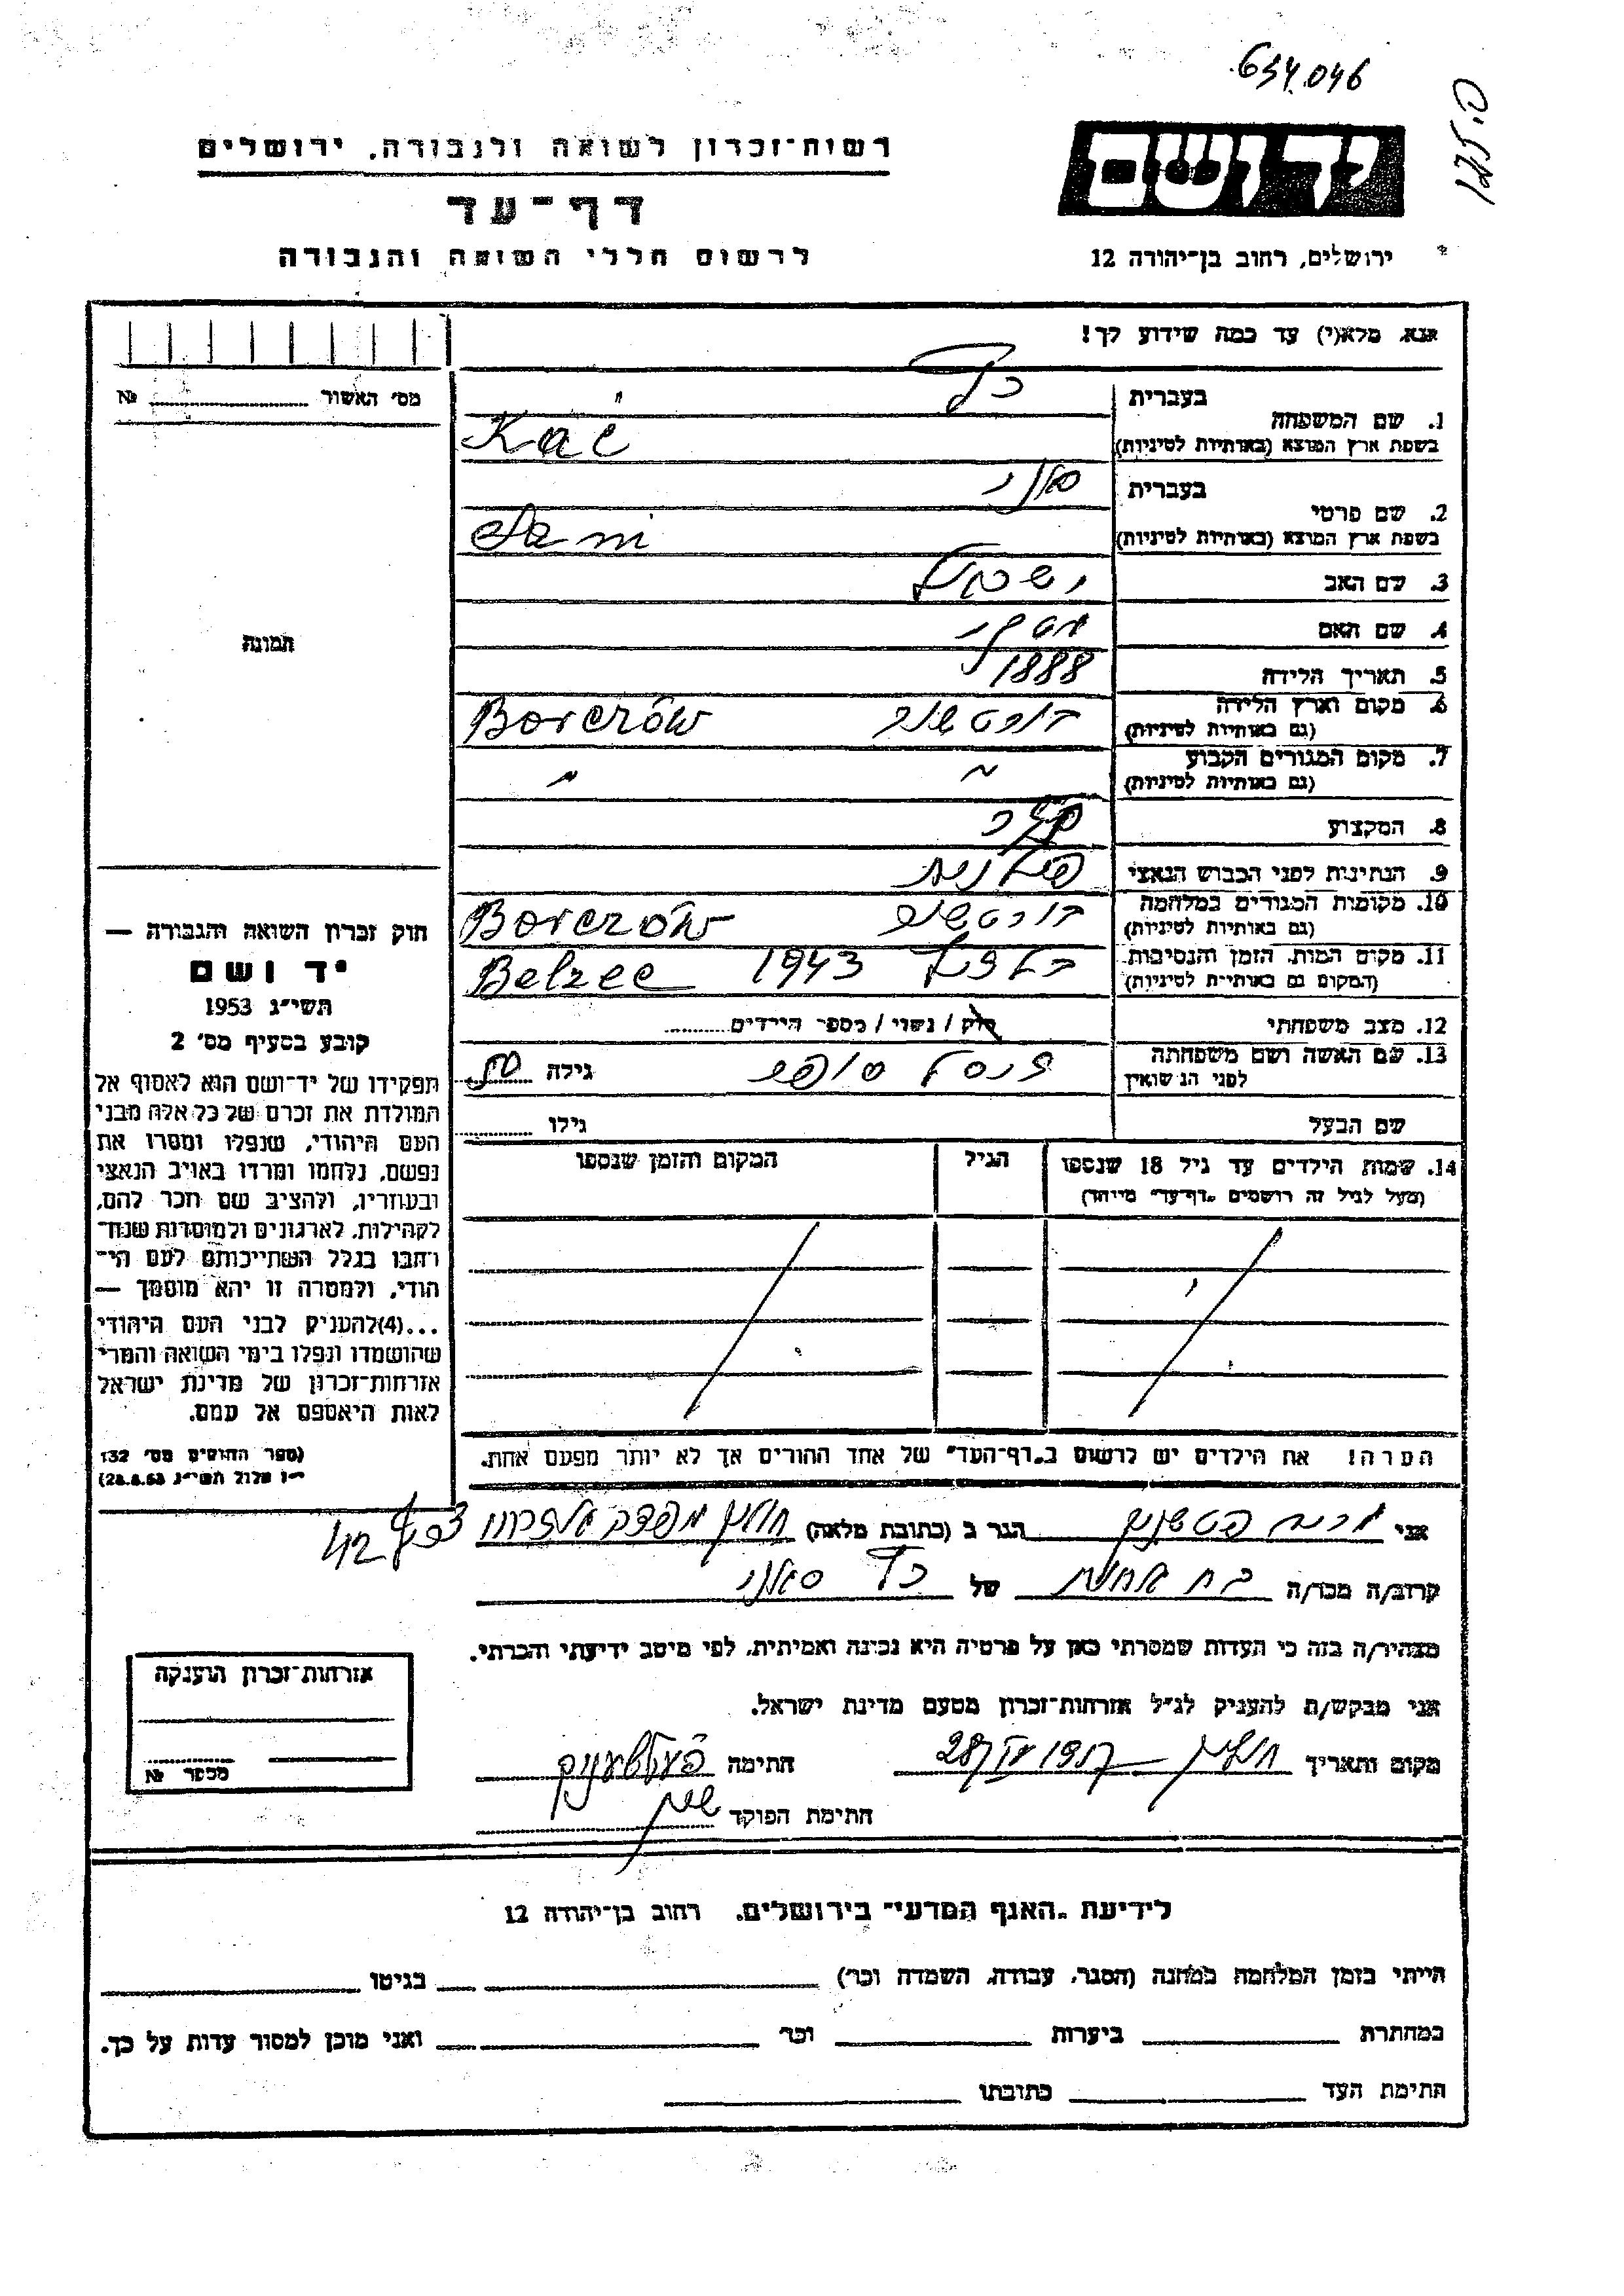 634.046
רשות־זכרון לשואה ולגבורה, ירושלים
יד ושם
דף־עד
לרשום חללי השואה והגבורה
ירושלים, רחוב בן־יהודה 12
אנא, מלא(י) עד כמה שידוע לך!
מס׳ האשור № 
1. שם המשפחה בעברית כץ
בשפת ארץ המוצא (באותיות לטיניות) Kac
2. שם פרטי בעברית סאני
בשפת ארץ המוצא (באותיות לטיניות) Sani
3. שם האב
4. שם האם
5. תאריך הלידה 1888
6. מקום וארץ הלידה (גם באותיות לטיניות) Borczów
7. מקום המגורים הקבוע (גם באותיות לטיניות) ״ ״
8. המקצוע
9. הנתינות לפני הכבוש הנאצי פולנית
10. מקומות המגורים במלחמה (גם באותיות לטיניות) Borczów
11. מקום המות, הזמן והנסיבות (המקום גם באותיות לטיניות) בלזץ 1943 Belzec
12. מצב משפחתי רוק / נשוי / מספר הילדים
13. שם האשה ושם משפחתה לפני הנשואין גילה 50
שם הבעל גילו
14. שמות הילדים עד גיל 18 שנספו הגיל המקום והזמן שנספו
(מעל לגיל זה רושמים „דף־עד״ מיוחד)
הערה! את הילדים יש לרשום ב„דף־העד״ של אחד ההורים אך לא יותר מפעם אחת.
תמונה
חוק זכרון השואה והגבורה —
יד ושם
תשי״ג 1953
קובע בסעיף מס׳ 2
תפקידו של יד־ושם הוא לאסוף אל
המולדת את זכרם של כל אלה מבני
העם היהודי, שנפלו ומסרו את
נפשם, נלחמו ומרדו באויב הנאצי
ובעוזריו, ולהציב שם וזכר להם,
לקהילות, לארגונים ולמוסדות שנח־
רבו בגלל השתייכותם לעם הי־
הודי, ולמטרה זו יהא מוסמך —
...(4)להעניק לבני העם היהודי
שהושמדו ונפלו בימי השואה והמרי
אזרחות־זכרון של מדינת ישראל
לאות היאספם אל עמם.
(ספר החוקים מס׳ 132
י״ז אלול תשי״ג 28.8.53)
אני הגר ב (כתובת מלאה) חולון 42
קרוב/ה מכר/ה בת אחות של כץ סאני
מצהיר/ה בזה כי העדות שמסרתי כאן על פרטיה היא נכונה ואמיתית, לפי מיטב ידיעתי והכרתי.
אני מבקש/ת להעניק לנ״ל אזרחות־זכרון מטעם מדינת ישראל.
מקום ותאריך חולון חתימה
חתימת הפוקד
אזרחות־זכרון הוענקה
מספר №
לידיעת „האגף המדעי״ בירושלים, רחוב בן־יהודה 12
הייתי בזמן המלחמה במחנה (הסגר, עבודה, השמדה וכו׳) בגיטו
במחתרת ביערות וכו׳ ואני מוכן למסור עדות על כך.
חתימת העד כתובתו